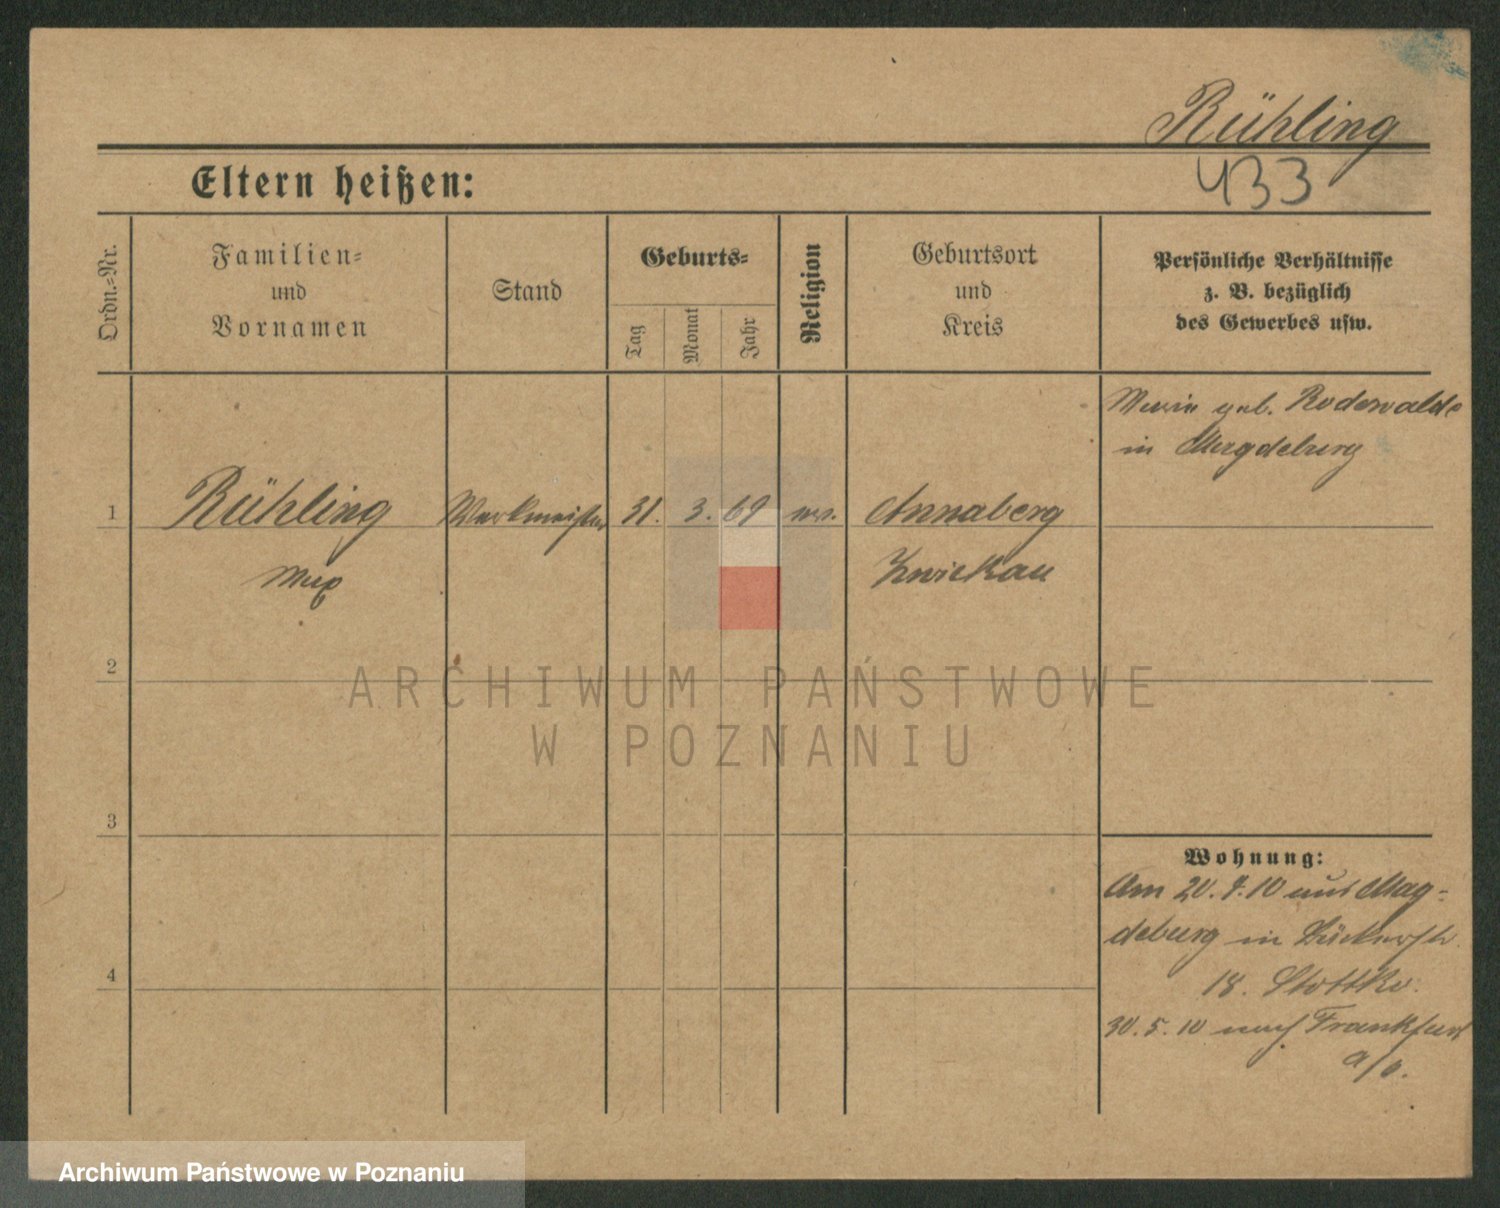 Rühling
433
Eltern heißen:
Ordn.-Nr.
Familien-
und
Vornamen
Stand
Geburts-
Tag
Monat
Jahr
Religion
Geburtsort
und
Kreis
Persönliche Verhältnisse
z. B. bezüglich
des Gewerbes usw.
Marie geb. Rodewald
in Magdeburg
1 Rühling Werkmeister 31. 3. 69 ev. Annaberg
Max Zwickau
2
ARCHIWUM PAŃSTWOWE
W POZNANIU
3
Wohnung:
Am 20.4.10 aus Mag-
deburg in
18. Stottko.
4
30.5.10 nach Frankfurt
a/O.
Archiwum Państwowe w Poznaniu